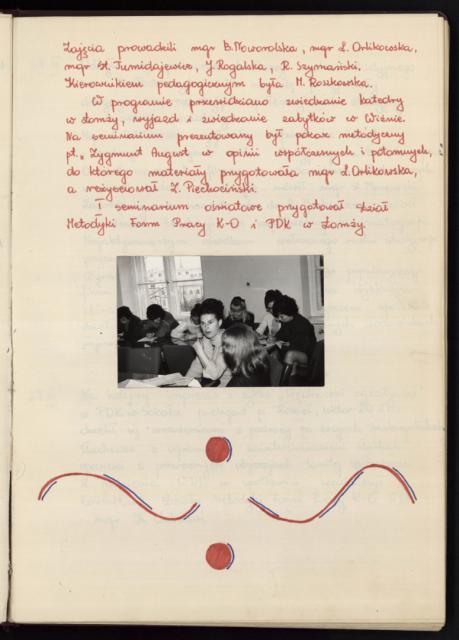 Zajęcia prowadzili mgr B. Noworolska, mgr L. Orlikowska,
mgr St. Tumidajewicz, J. Rogalska, R. Szymański.
Kierownikiem pedagogicznym była M. Roszkowska.
W programie przewidziano zwiedzanie katedry
w Łomży, wyjazd i zwiedzanie zabytków w Wiźnie.
Na seminarium prezentowany był pokaz metodyczny
pt. „Zygmunt August w opinii współczesnych i potomnych,
do którego materiały przygotowała mgr L. Orlikowska,
a reżyserował Z. Piechociński.
I seminarium oświatowe przygotował dział
Metodyki Form Pracy K-O i PDK w Łomży.